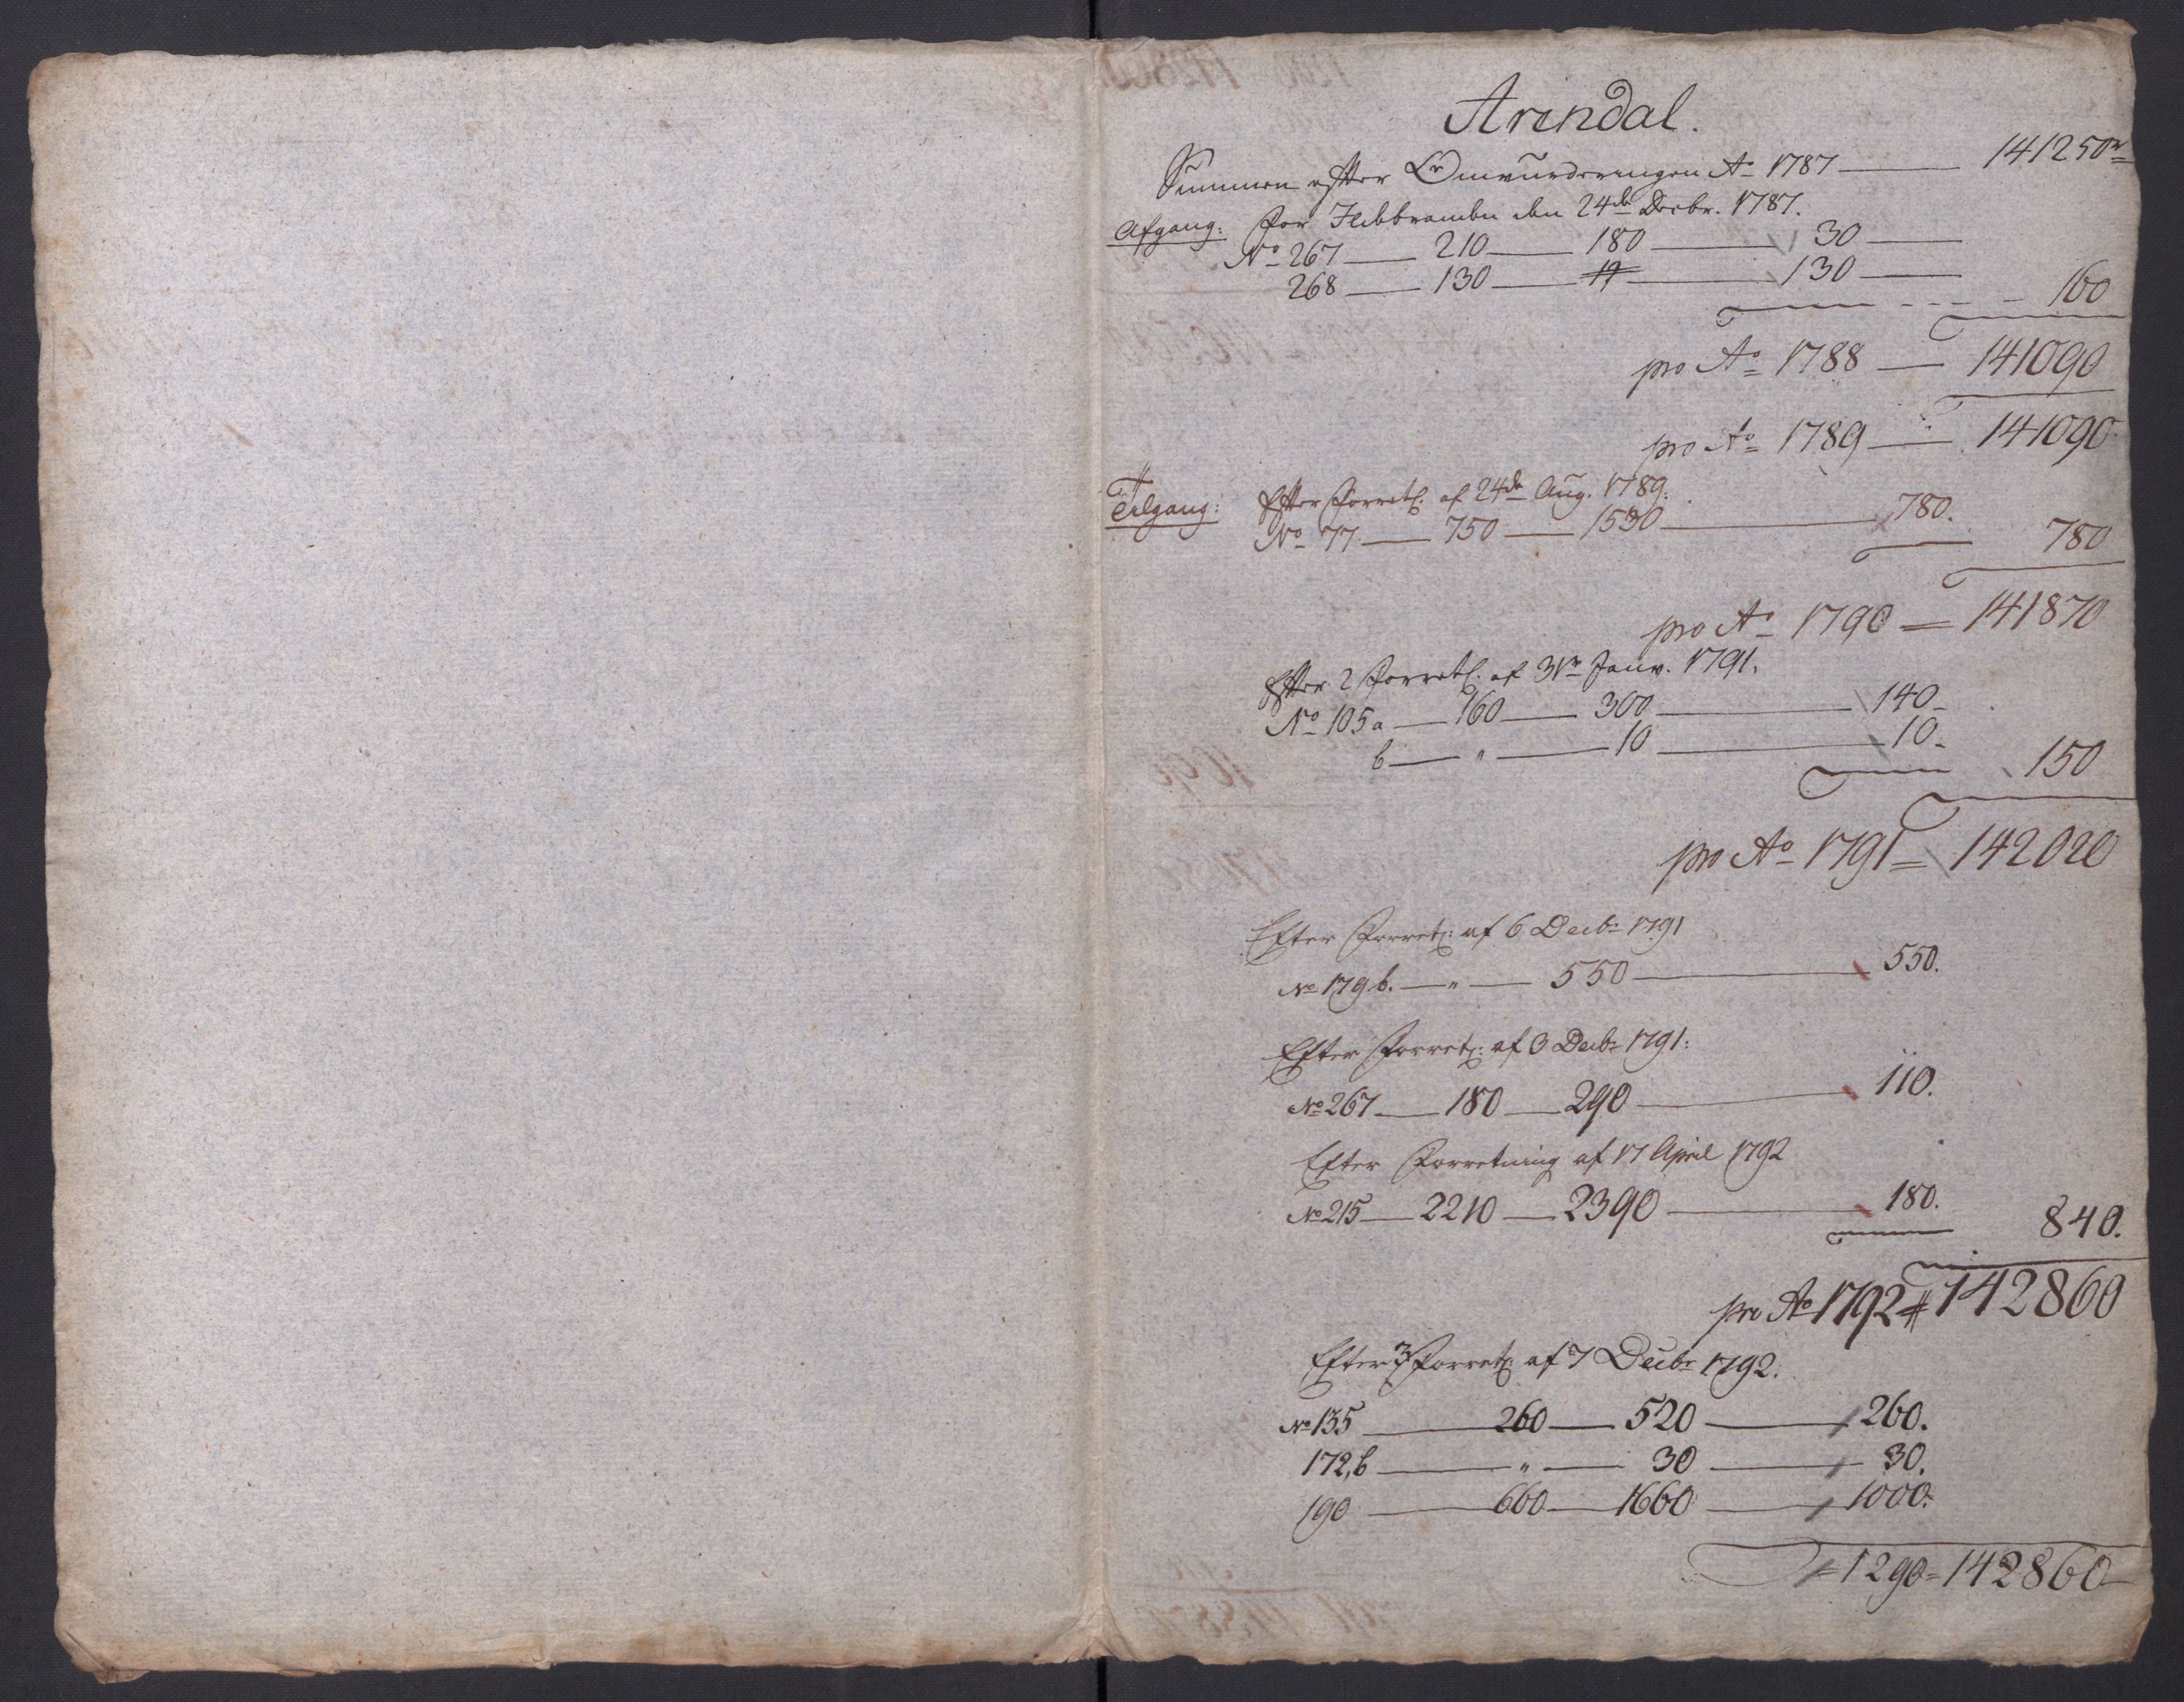 Arendal.
Summen efter Omvurderingen Aº 1787 — 141250
Afgang: for Ildebranden den 24de Decbr. 1787.
Nº 267 — 210 — 180 — 30 —
268 — 130 — " — 130 —
160
pro Aº 1788 — 141090
pro Aº 1789 — 141090
Tilgang: Efter Forretn. af 24de Aug. 1789.
Nº 77 — 750 — 1530 — 780.
780
pro Aº 1790 = 141870
Efter 2 Forretn. af 31te Janv. 1791.
Nº 105a — 160 — 300 — 140 -
b — " — 10 — 10 -
150
pro Aº 1791 = 142020
Efter Forretn: af 6 Decbr 1791
Nº 179 b. — " — 550 — 550.
Efter Forretn: af 3 Decbr 1791:
Nº 267 — 180 — 290 — 110.
Efter Forretning af 17 April 1792
Nº 215 — 2210 — 2390 — 180.
840.
pro Aº 1792 = 142860
Efter 3 Forretn: af 7 Decbr 1792.
Nº 135 — 260 — 520 — 260.
172,b — " — 30 — 30.
190 — 660 — 1660 — 1000.
1290 = 142860